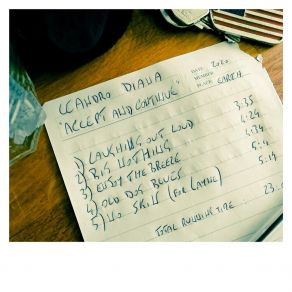 LEANDRO DIANA
"ACCEPT AND CONTINUE"
DATE 2020
NUMBER
PLACE EARTH
1) LAUGHING OUT LOUD 3:35
2) BIG NOTHING 4:24
3) ENJOY THE BREEZE 4:34
4) OLD DOG BLUES 5:4
5) NO SKILL (FOR LAYNE) 5:19
TOTAL RUNNING TIME: 23